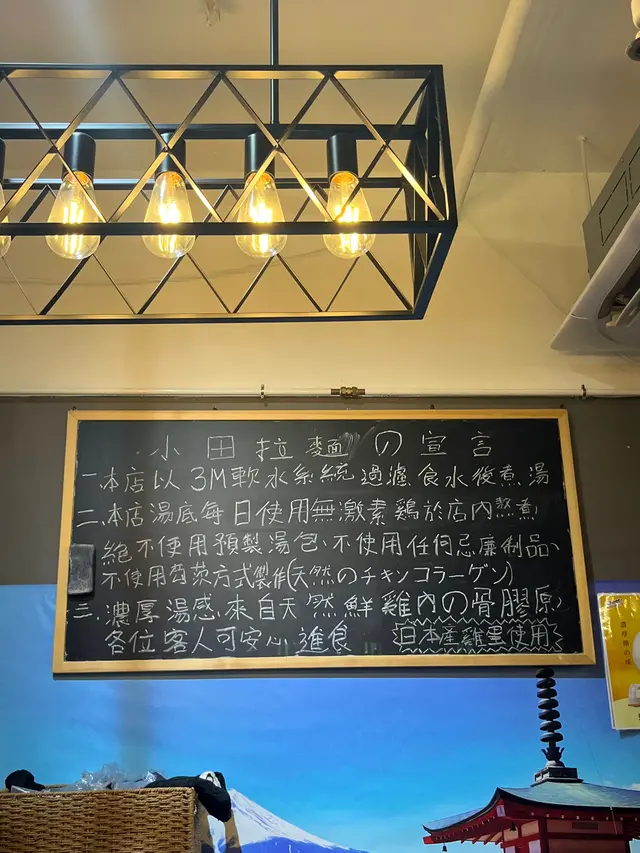 小田拉麵の宣言
一.本店以3M軟水系統過濾食水後煮湯
二.本店湯底每日使用無激素鷄於店内熬煮
絕不使用預製湯包、不使用任何忌廉制品、
不使用芶芡方式製作(天然のチキンコラーゲン)
三.濃厚湯感來自天然鮮雞內の骨膠原,
各位客人可安心進食 日本產雞黒使用